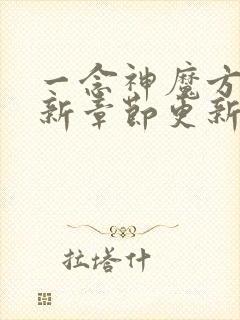 一念神魔方
新章节更新
拉塔什